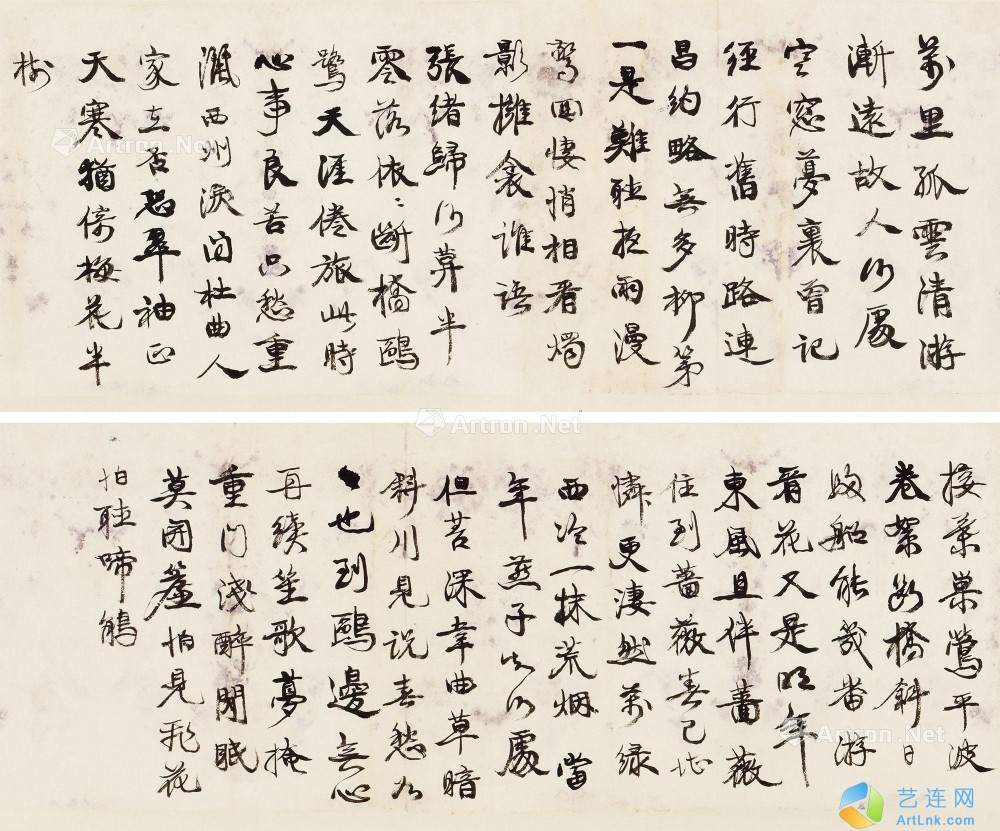 萬里孤雲清游
漸遠故人何處
空窓夢裏曾記
經行舊時路連
昌約略无多柳第
一是難聽夜雨漫
驚回悽悄相看燭
影擁衾誰語
張緒歸何暮半
零落依〻斷橋鷗
鷺天涯倦旅此時
心事良苦只愁重
灑西州淚問杜曲人
家在否恐翠袖正
天寒猶倚梅花半
樹
接葉巢鶯平波
卷絮斷橋斜日
歸船能幾番游
看花又是明年
東風且伴薔薇
住到薔薇春已堪
憐更淒然萬綠
西泠一抹荒烟當
年燕子知何處
但苔深韋曲草暗
斜川見說春愁如
也到鷗邊无心
再續笙歌夢掩
重門淺醉閒眠
莫開簾怕見飛花
怕聽啼鵑
Artron.Net
Artron.Net
Artron.Net
Artron.Net
Artron.Net
艺连网
ArtLnk.com